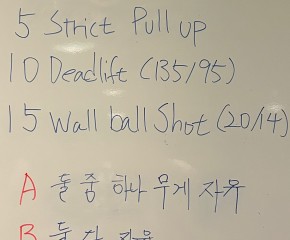 5 Strict Pull up
10 Deadlift (135/95)
15 Wall ball Shot (20/14)
A 둘 중 하나 무게 자유
B 둘 다 자유